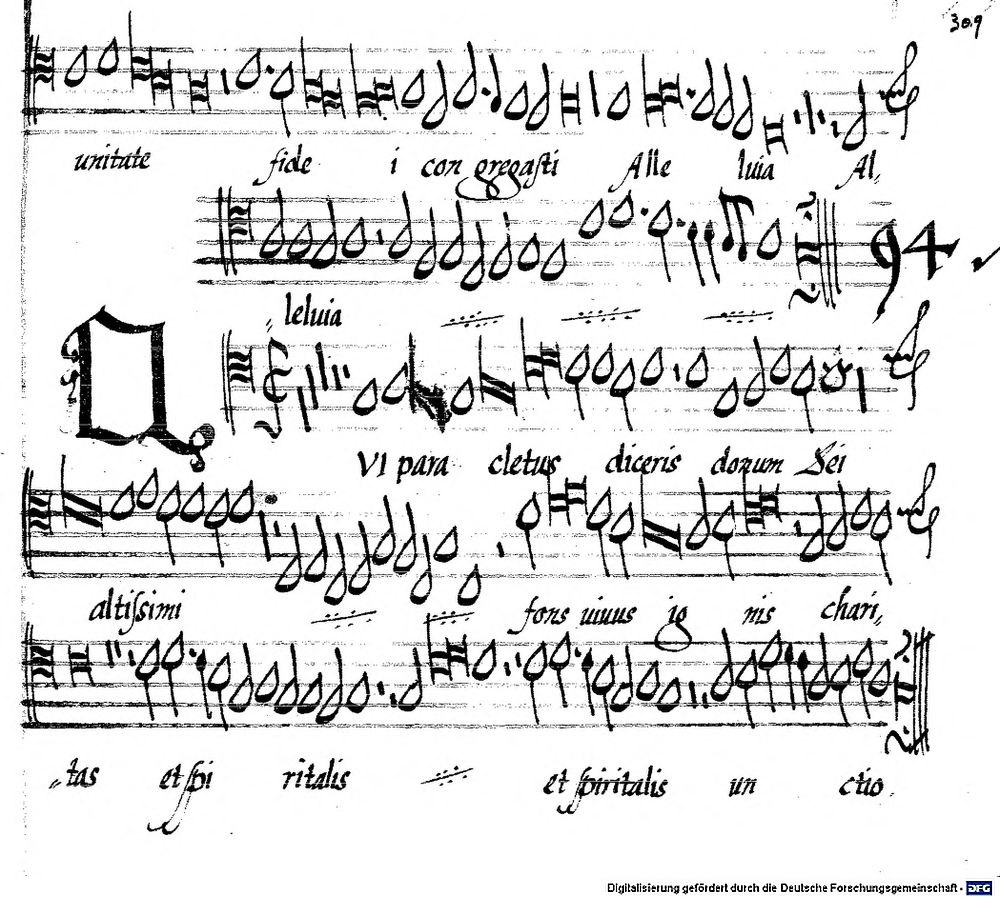 309
unitate fide i con gregasti Alle luia Al„
„ leluia
94
Q VI para cletus diceris donum Dei
altissimi fons uiuus ig nis chari„
„tas et spi ritalis et spiritalis un ctio
Digitalisierung gefördert durch die Deutsche Forschungsgemeinschaft - DFG